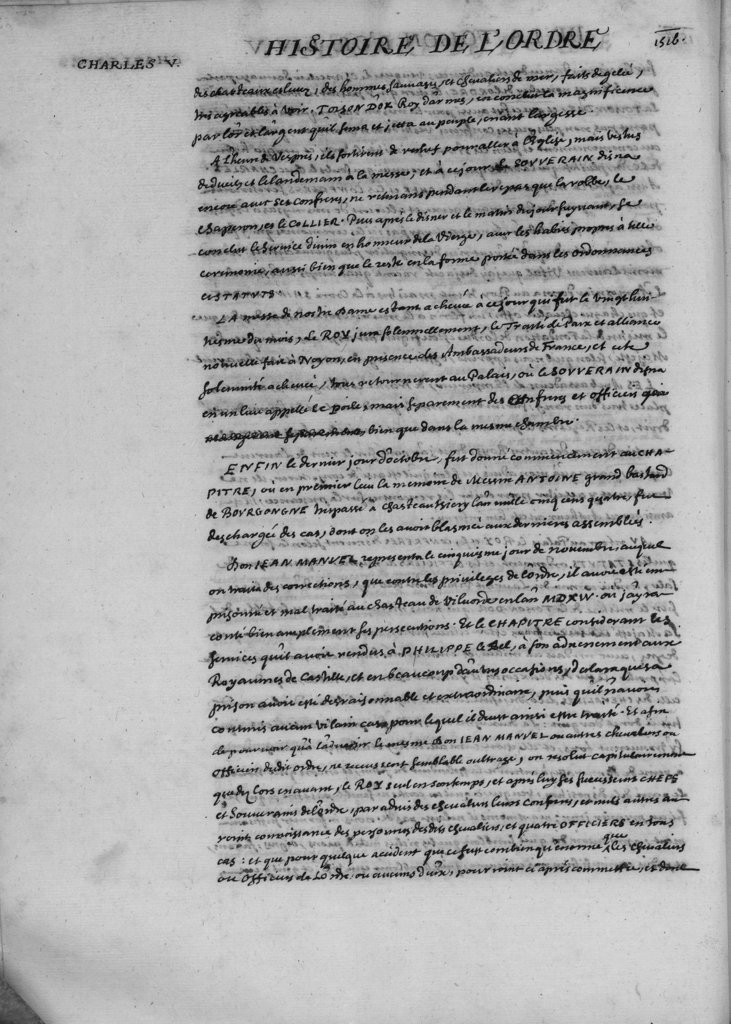 HISTOIRE DE L'ORDRE
1516.
CHARLES V.
des chasteaux eslevez, des hommes sauvages, et chevaliers de mer, faits de gelée,
tres agreables à voir. TOISON D'OR Roy d'armes, en conclut la magnificence
par l'or et l'argent qu'il sema et jetta au peuple, criant largesse.
A l'heure de Vespres, ils sortirent de rechef pour aller à l'Eglise, mais vestus
de dueil, et le landemain à la messe; et à ce jour le SOUVERAIN disna
encore avec ses confreres, ne retenans pendant le repas que la robbe, le
chaperon, et le COLLIER. Puis après le disner et le matin du jour suyvant, se
conclut le service divin en honneur de la Vierge, avec les habits propres à telle
ceremonie, aussi bien que le reste en la forme portée dans les ordonnances
et STATUTS.
LA messe de nostre Dame estant achevée à ce jour qui fut le vingthui-
tiesme du mois, Le ROY jura solemnellement, le Traité de Paix et alliance
nouvelle fait à Noyon, en presence des Ambassadeurs de France, et cete
solemnité achevée, tous retournerent au Palais, où le SOUVERAIN disna
en un lieu appellé le poile, mais separement des Confreres et officiers
bien que dans la mesme chambre.
ENFIN le dernier jour d'octobre, fut donné commencement au CHA-
PITRE, où en premier lieu la memoire de Messire ANTOINE grand bastard
de BOURGONGNE trespassé à Chasteauthierry l'an mille cinq cens quatre, fut
deschargée des cas, dont on les avoit blasmée aux dernieres assemblées.
Don JEAN MANUEL, representa le cinquiesme jour de novembre, auquel
on traita des corrections, que contre les privileges de l'ordre, il avoit esté em-
prisonné et mal traité au chasteau de Vilvorde en l'an MDXIV. où j'ay ra-
conté bien amplement ses persecutions. Et le CHAPITRE considerant les
services qu'il avoit rendus à PHILIPPE le Bel, à son advenement aux
Royaumes de Castille, et en beaucoup d'autres occasions, declara que sa
prison avoit esté desraisonnable et extraordinaire, puis qu'il n'avoit
commis aucun vilain cas pour lequel il deust ainsi estre traité. Et afin
de pourvoir qu'à l'advenir le mesme Don JEAN MANUEL ou autres chevaliers ou
Officiers dudit ordre, ne receussent semblable oultrage, on resolut capitulairement
que dez lors en avant, le ROY seul en son temps, et apres luy ses successeurs CHEFS
et Souverains de l'ordre, par advis des chevaliers leurs confreres, et nuls autres au-
roient connoissance des personnes desdits chevaliers, et quatre OFFICIERS en tous
cas: et que pour quelque accident que ce fust combien qu'enorme, que les chevaliers
ou Officiers de l'ordre, ou aucuns d'eux, pourroient ci après commettre, et dont